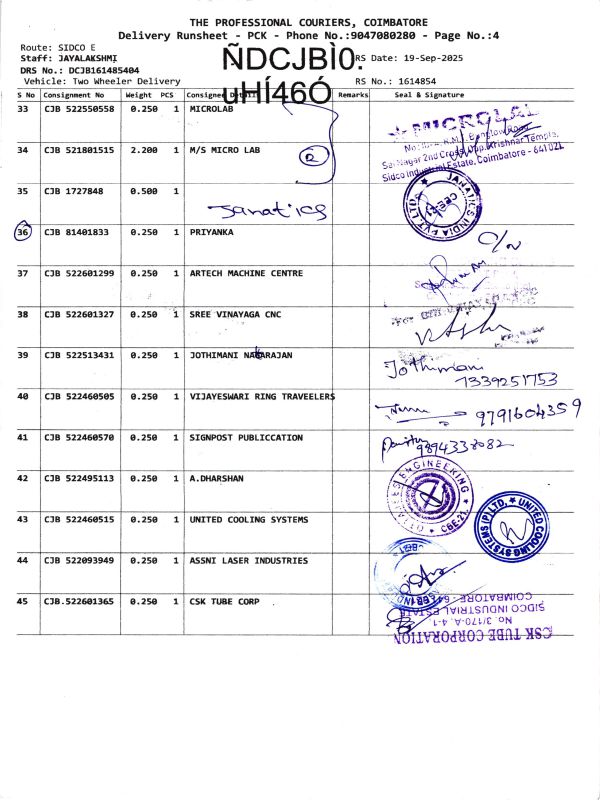 THE PROFESSIONAL COURIERS, COIMBATORE
Delivery Runsheet - PCK - Phone No.:9047080280 - Page No.:4
Route: SIDCO E
Staff: JAYALAKSHMI
ÑDCJBÌ0. RS Date: 19-Sep-2025
DRS No.: DCJB161485404
Vehicle: Two Wheeler Delivery
uHÍ46Ó RS No.: 1614854
S No Consignment No Weight PCS Consignee Details Remarks Seal & Signature
33 CJB 522550558 0.250 1 MICROLAB
MICROLAB
34 CJB 521801515 2.200 1 M/S MICRO LAB 2
Sai Nagar 2nd Cross, Opp. Krishnar Temple,
Sidco Industrial Estate, Coimbatore - 641 021.
35 CJB 1727848 0.500 1
Janatics
JANATICS INDIA PVT LTD. CBE-21
36 CJB 81401833 0.250 1 PRIYANKA
37 CJB 522601299 0.250 1 ARTECH MACHINE CENTRE
38 CJB 522601327 0.250 1 SREE VINAYAGA CNC
39 CJB 522513431 0.250 1 JOTHIMANI NATARAJAN
Jothimani
7339251753
40 CJB 522460505 0.250 1 VIJAYESWARI RING TRAVEELERS
9791604359
41 CJB 522460570 0.250 1 SIGNPOST PUBLICCATION
9894338082
42 CJB 522495113 0.250 1 A.DHARSHAN
ENGINEERING CBE-21
43 CJB 522460515 0.250 1 UNITED COOLING SYSTEMS
UNITED COOLING SYSTEMS (P) LTD.
44 CJB 522093949 0.250 1 ASSNI LASER INDUSTRIES
45 CJB.522601365 0.250 1 CSK TUBE CORP
CSK TUBE CORPORATION
No. 3/170-A, 4-1
SIDCO INDUSTRIAL ESTATE
COIMBATORE - 64